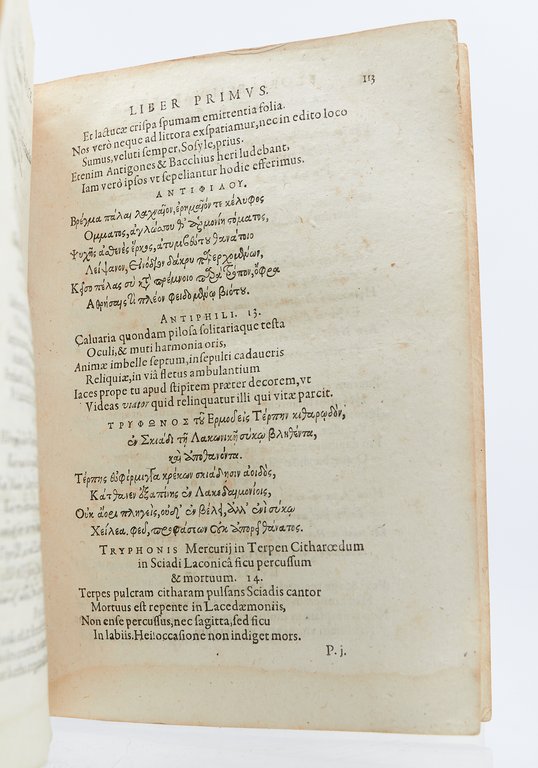 LIBER PRIMVS. 113
Et lactucæ crispa spumam emittentia folia.
Nos verò neque ad littora exspatiamur, nec in edito loco
Sumus, veluti semper, Sosyle, prius.
Etenim Antigones & Bacchius heri ludebant,
Iam verò ipsos vt sepeliantur hodie efferimus.
ΑΝΤΙΦΙΛΟΥ.
Βρέγμα πάλαι λαχναῖον, ἐρημαῖόν τε κέλυφος
Ὄμματος, ἀγλώσσου θ' ἁρμονίη στόματος,
Ψυχῆς ἀσθενὲς ἕρκος, ἀτυμβεύτου θανάτοιο
Λείψανον, εἰνόδιον δάκρυ παρερχομένων,
Κεῖσο πέλας σὺ κατὰ πρέμνοιο παρὰ τρόπον, ὄφρα
Ἀθρήσας τί πλέον φειδομένῳ βιότου.
ANTIPHILI. 13.
Caluaria quondam pilosa solitariaque testa
Oculi, & muti harmonia oris,
Animæ imbelle septum, insepulti cadaueris
Reliquiæ, in viâ fletus ambulantium
Iaces prope tu apud stipitem præter decorem, vt
Videas viator quid relinquatur illi qui vitæ parcit.
ΤΡΥΦΩΝΟΣ τοῦ Ἑρμοῦ εἰς Τέρπην κιθαρῳδὸν,
ἐν Σκιάδι τῇ Λακωνικῇ σύκῳ βληθέντα,
καὶ ἀποθανόντα.
Τέρπης εὐφόρμιγγα κρέκων σκιάδεσσιν ἀοιδὸς,
Κάτθανεν ἐξαπίνης ἐν Λακεδαιμονίοις,
Οὐκ ἄορι πληγεὶς, οὐδ' ἐν βέλει, ἀλλ' ἐνὶ σύκῳ
Χείλεα. φεῦ, προφάσεων οὐκ ἀπορεῖ θάνατος.
TRYPHONIS Mercurij in Terpen Citharœdum
in Sciadi Laconicâ ficu percussum
& mortuum. 14.
Terpes pulcram citharam pulsans Sciadis cantor
Mortuus est repente in Lacedæmoniis,
Non ense percussus, nec sagitta, sed ficu
In labiis. Hei! occasione non indiget mors.
P. j.